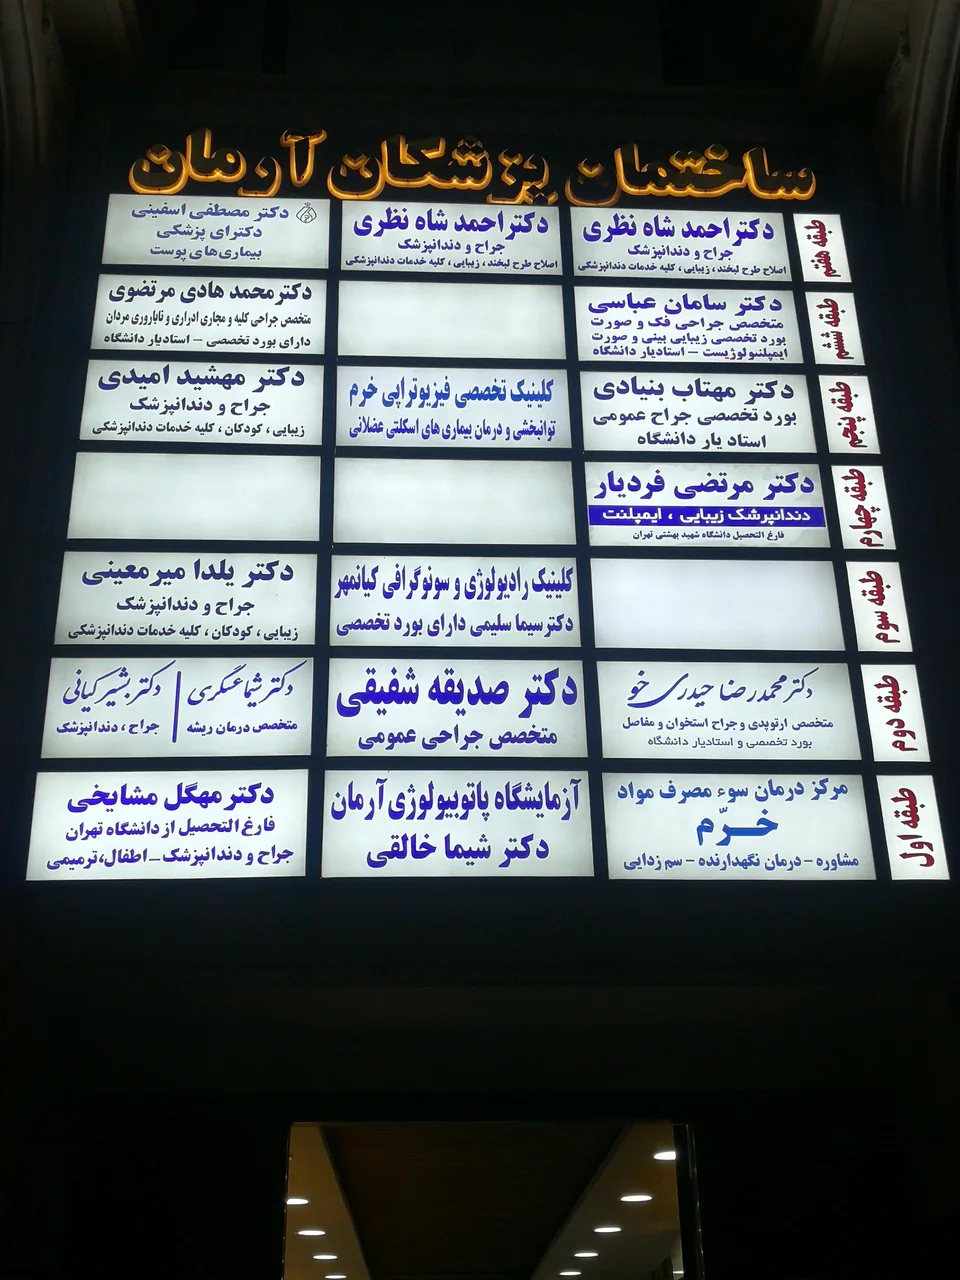 ساختمان پزشکان آرمان
طبقه هفتم
دکتر احمد شاه نظری
جراح و دندانپزشک
اصلاح طرح لبخند ، زیبایی ، کلیه خدمات دندانپزشکی
دکتر احمد شاه نظری
جراح و دندانپزشک
اصلاح طرح لبخند ، زیبایی ، کلیه خدمات دندانپزشکی
دکتر مصطفی اسفینی
دکترای پزشکی
بیماری‌های پوست
طبقه ششم
دکتر سامان عباسی
متخصص جراحی فک و صورت
بورد تخصصی زیبایی بینی و صورت
ایمپلنتولوژیست – استادیار دانشگاه
دکتر محمد هادی مرتضوی
متخصص جراحی کلیه و مجاری ادراری و ناباروری مردان
دارای بورد تخصصی – استادیار دانشگاه
طبقه پنجم
دکتر مهتاب بنیادی
بورد تخصصی جراح عمومی
استاد یار دانشگاه
کلینیک تخصصی فیزیوتراپی خرم
توانبخشی و درمان بیماری های اسکلتی عضلانی
دکتر مهشید امیدی
جراح و دندانپزشک
زیبایی ، کودکان ، کلیه خدمات دندانپزشکی
طبقه چهارم
دکتر مرتضی فردیار
دندانپزشک زیبایی ، ایمپلنت
فارغ التحصیل دانشگاه شهید بهشتی تهران
طبقه سوم
کلینیک رادیولوژی و سونوگرافی کیانمهر
دکتر سیما سلیمی دارای بورد تخصصی
دکتر یلدا میرمعینی
جراح و دندانپزشک
زیبایی ، کودکان ، کلیه خدمات دندانپزشکی
طبقه دوم
دکتر محمدرضا حیدری خو
متخصص ارتوپدی و جراح استخوان و مفاصل
بورد تخصصی و استادیار دانشگاه
دکتر صدیقه شفیقی
متخصص جراحی عمومی
دکتر شیما عسگری
متخصص درمان ریشه
دکتر بشیر کیانی
جراح ، دندانپزشک
طبقه اول
مرکز درمان سوء مصرف مواد
خرّم
مشاوره – درمان نگهدارنده – سم زدایی
آزمایشگاه پاتوبیولوژی آرمان
دکتر شیما خالقی
دکتر مهگل مشایخی
فارغ التحصیل از دانشگاه تهران
جراح و دندانپزشک – اطفال، ترمیمی